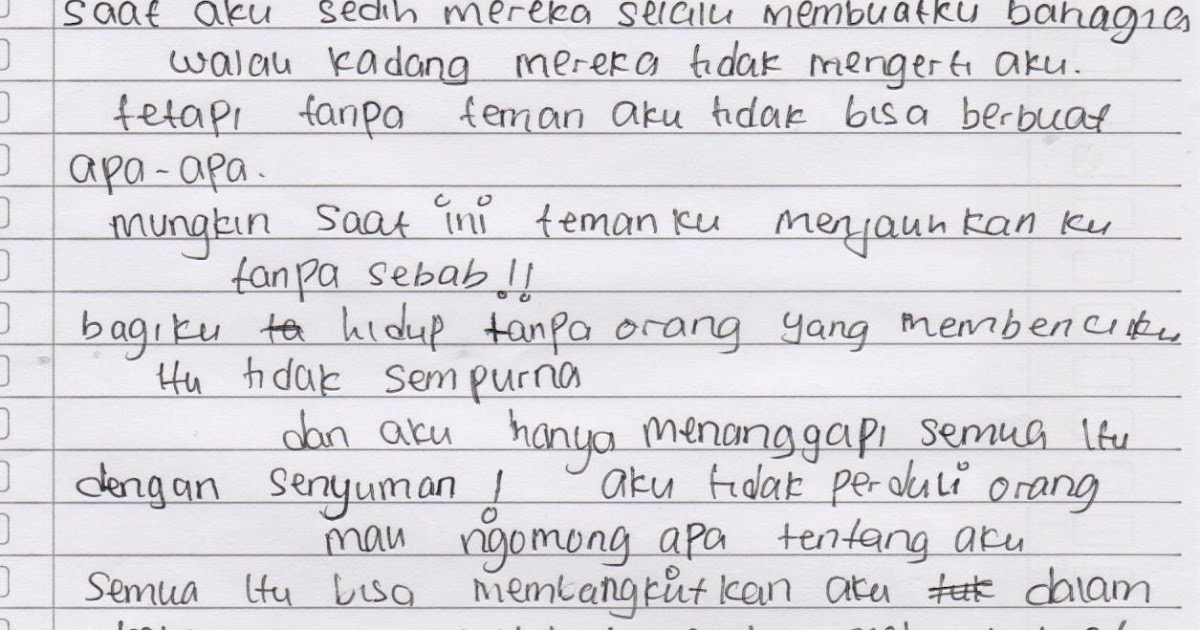 saat aku sedih mereka selalu membuatku bahagia
walau kadang mereka tidak mengerti aku.
tetapi tanpa teman aku tidak bisa berbuat
apa-apa.
mungkin saat ini temanku menjauhkanku
tanpa sebab!!
bagiku ta hidup tanpa orang yang membenciku
itu tidak sempurna
dan aku hanya menanggapi semua itu
dengan senyuman! aku tidak perduli orang
mau ngomong apa tentang aku
semua itu bisa membangkitkan aku tuk dalam